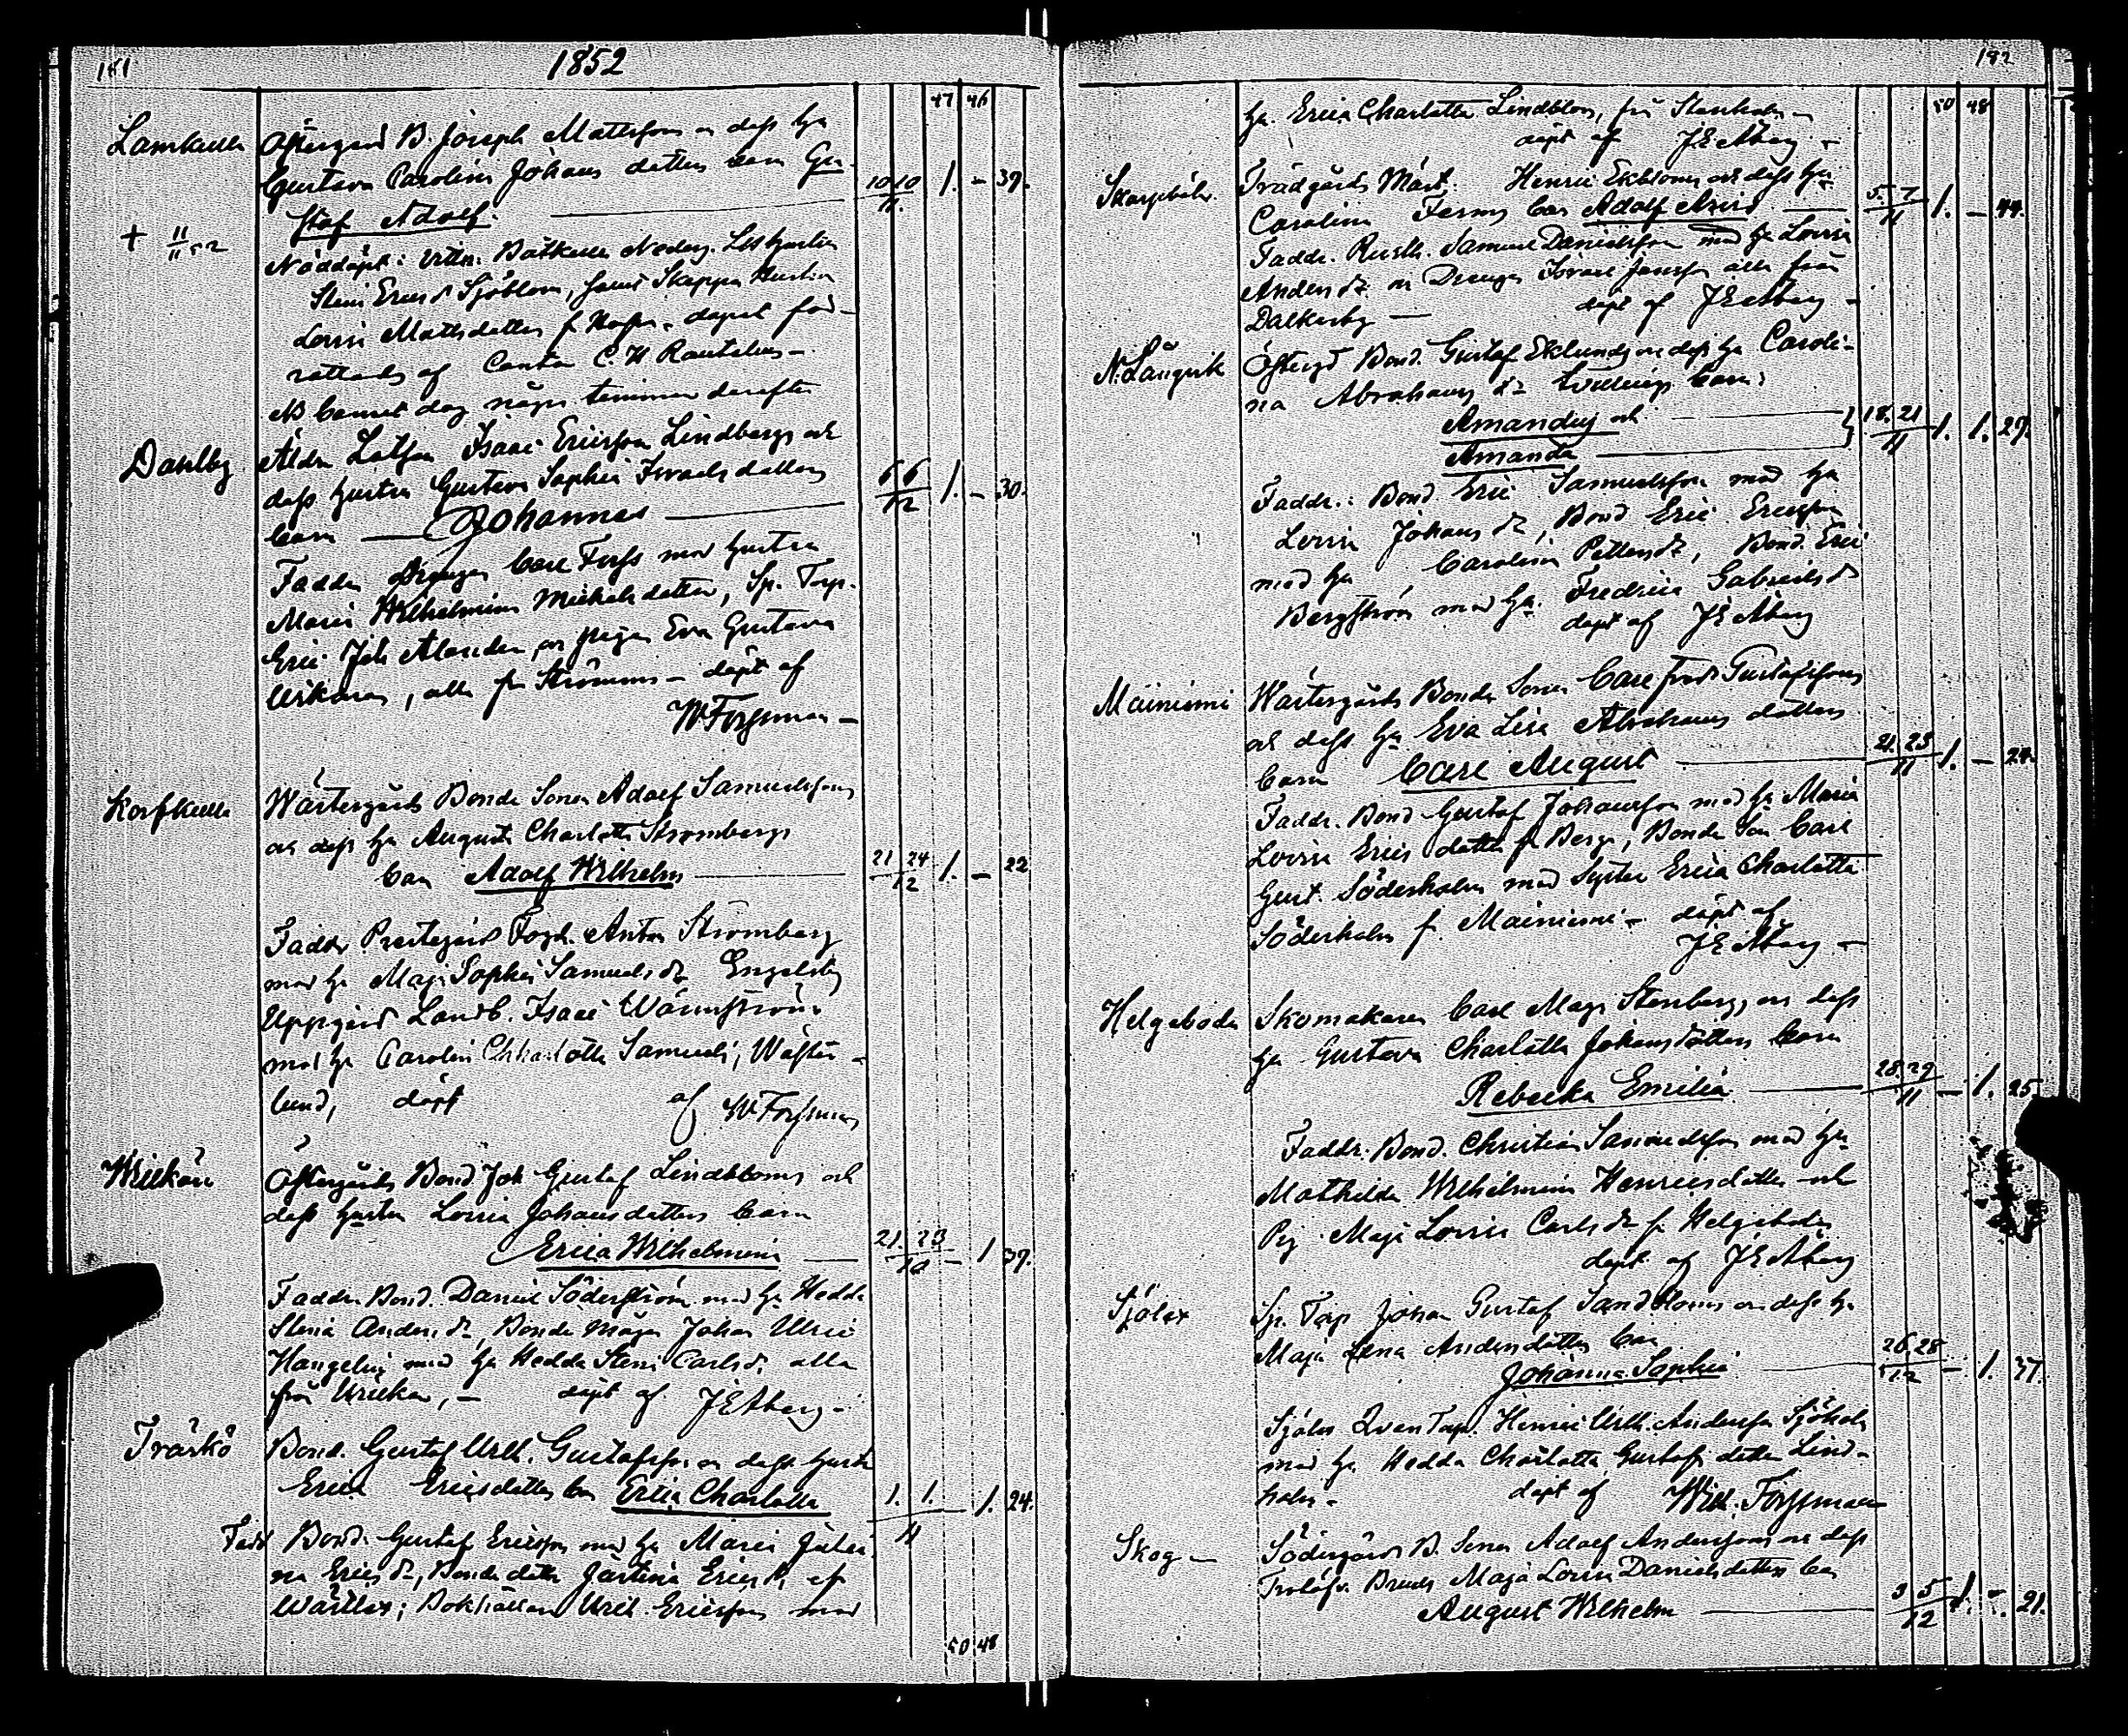 181
1852
47 46
Lamkulla Östergård B. Joseph Mattsson o dess hu
Gustava Carolina Johans dotters barn Gu- 10 10 / 11. 1. - 39.
staf Adolf.
+ 11/11 52
Nöddöpt: Båtkulla
Stina Ericsd. Sjöblom, samt Skeppar Hustru
Lovisa Mattsdotter f. dopet för-
rättades af C. H. Rautelius -
barnet dog några timmar derefter
Dahlby Isaac Ericsson Lindbergs och
dess hustru Gustava Sophia Israelsdotters 6 6 / 12 1. - 30.
barn Johannes
Faddr. Drengen Carl Forss med hustru
Maria Wilhelmina Michelsdotter, Sp. Torp.
Eric Joh. o pigan Eva Gustava
alla fr. Strömma - döpt af
W Forssman -
Korfkulla Wästergårds Bonde Sonen Adolf Samuelssons
och dess hu Augusta Charlotta Strömbergs
barn Adolf Wilhelm 21 24 / 12 1. - 22
Faddr. Prestegårds Fogd. Anton Strömberg
med hu Maja Sophia Samuels dr Engelsby
Uppgård Landb. Isaac Wärnström
med hu Carolin Chharlotta Samuels, Wäster-
lund, döpt af W Forssman
Östergårds Bond. Joh Gustaf Lindbloms och
dess hustru Lovisa Johansdotters barn
Erica Wilhelmina 21. 23 / 10 - 1 39.
Faddr. Bond. Daniel Söderström med hu Hedda
Stina Anders dr, Bonde Mågen Johan Ulric
med hu Hedda Stina Carlsd. alla
från - döpt af J E Åberg -
Träskö Bond. Gustaf Wilh. Gustafsson o dess hustr
Erica Ericsdotters barn Erica Charlotta 1. 1. / 11 - 1. 24.
Fadd Bond. Gustaf Ericsson med hu Maria
na Erics dr, Bonde dottr Justina Ericsd. af
Bokhållaren Wilh. Ericsson med
50 48
182
50 48
hu Erica Charlotta Lindblom, från Stenholm -
döpt af J E Åberg -
Trädgårds Mäst. Henric Ekbloms och dess hu
Carolina barn Adolf 5. 7 / 11 1. - 44.
Faddr. Rusth. Samuel Danielsson med hu Lovisa
Anders dr o Drengen Israel Jansson alla från
Dalkarby - döpt af J E Åberg -
N. Långvik Östergd Bond. Gustaf Eklunds o dess hu Caroli-
na Abrahams dr tvillings barn:
Amandus och
Amanda 18. 21 / 11 1. 1. 29.
Faddr.: Bond. Eric Samuelsson med hu
Lovisa Johans dr, Bond. Eric Ericsson
med hu Carolina Petters dr, Bond. Eric
Bergström med hu. Fredrica Gabrielsd
döpt af J E Åberg
Mainiemi Wästergårds Bonde Sonen Carl Fredr Gustafssons
och dess hu Eva Lisa Abrahams dotters
barn Carl August 21. 23 / 11 1. - 24.
Faddr. Bond. Gustaf Johansson med hu Maria
Lovisa Erics dotter fr Berga, Bonde Son Carl
Gust. Söderholm med Syster Erica Charlotta
Söderholm f. Mainiemi - döpt af
J E Åberg -
Helgeboda Skomakaren Carl Magn Stenbergs, och dess
hu Gustava Charlotta Johansdotters barn
Rebecka Emilia 28. 29 / 11 - 1. 25
Faddr. Bond. Christian Samuelsson med hu
Mathilda Wilhelmina Henricsdotter och
Pig. Maja Lovisa Carls dr fr Helgeboda
döpt af J E Åberg
Sjölax Sp. Torp Johan Gustaf Sandbloms o dess hu
Maja Lena Andersdotters barn
Johanna Sophia 26. 28 / 12 - 1. 37.
Sjölax Torp. Henric Wilh. Andersson Sjöholm
med hu Hedda Charlotta Gustafs dotter Lind-
holm - döpt af Wilh. Forssman
Skog - Södergårds B. Sonen Adolf Anderssons och dess
Trolofv. Bruds Maja Lovisa Danielsdotters barn
August Wilhelm 3 5 / 12 1. - 21.